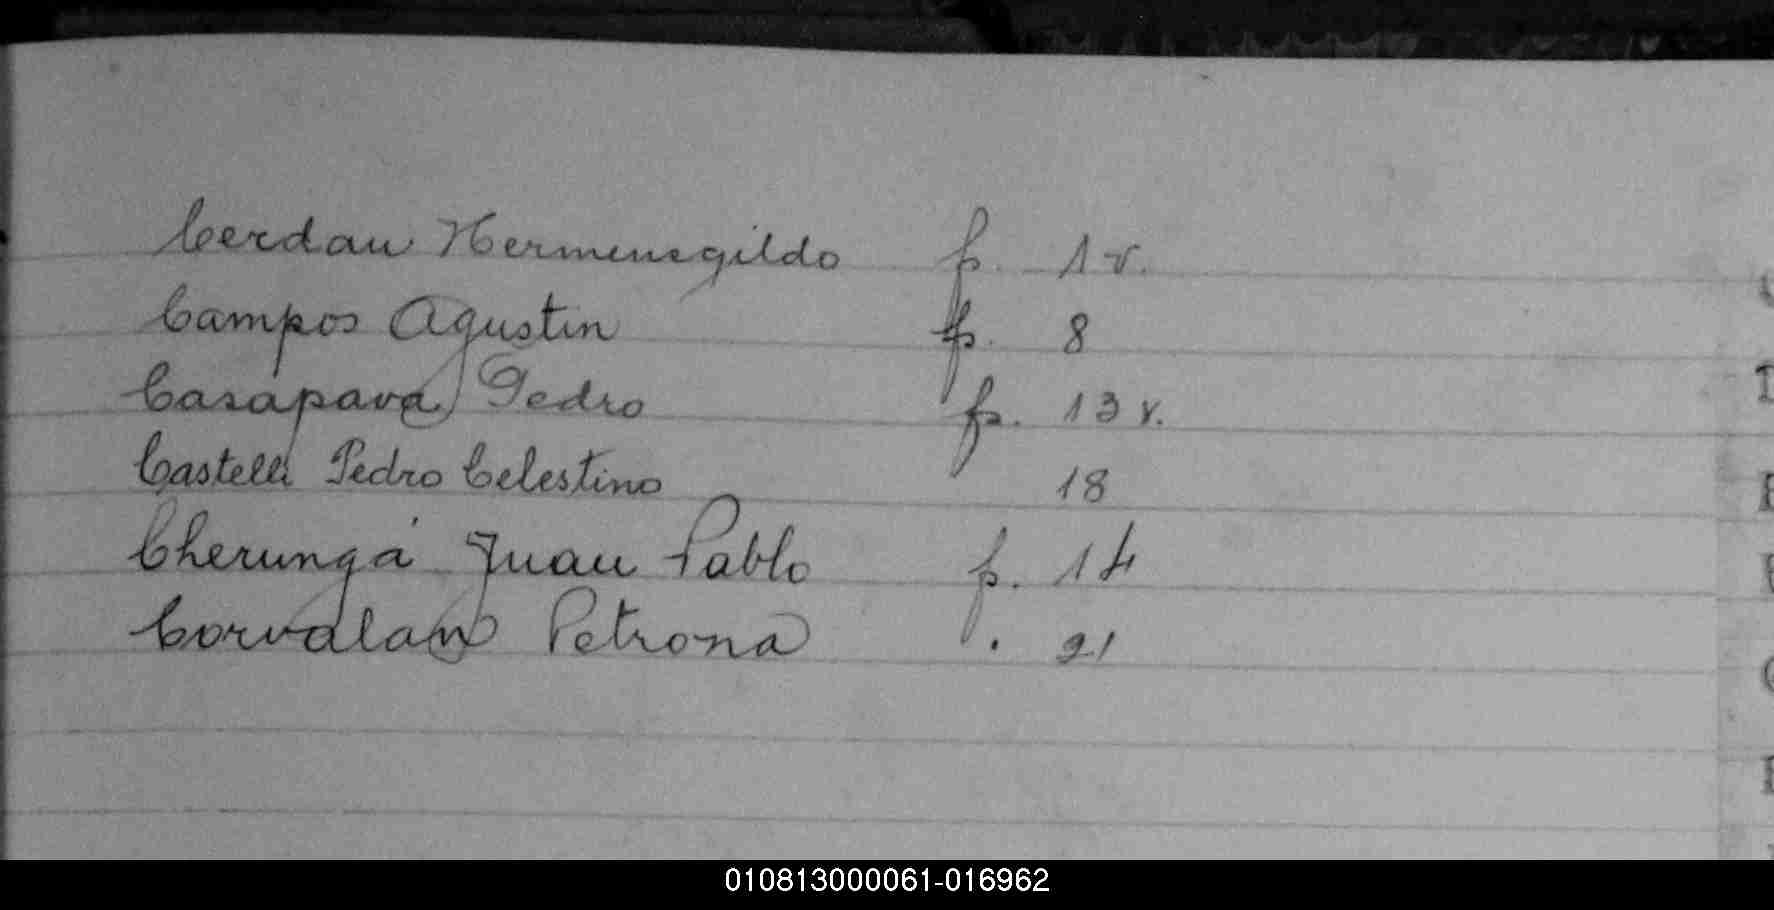 Cerdan Hermenegildo p. 1 v.
Campos Agustin p. 8
Casapava Pedro p. 13 v.
Castelli Pedro Celestino 18
Cherungá Juan Pablo p. 14
Corvalan Petrona . 21
010813000061-016962